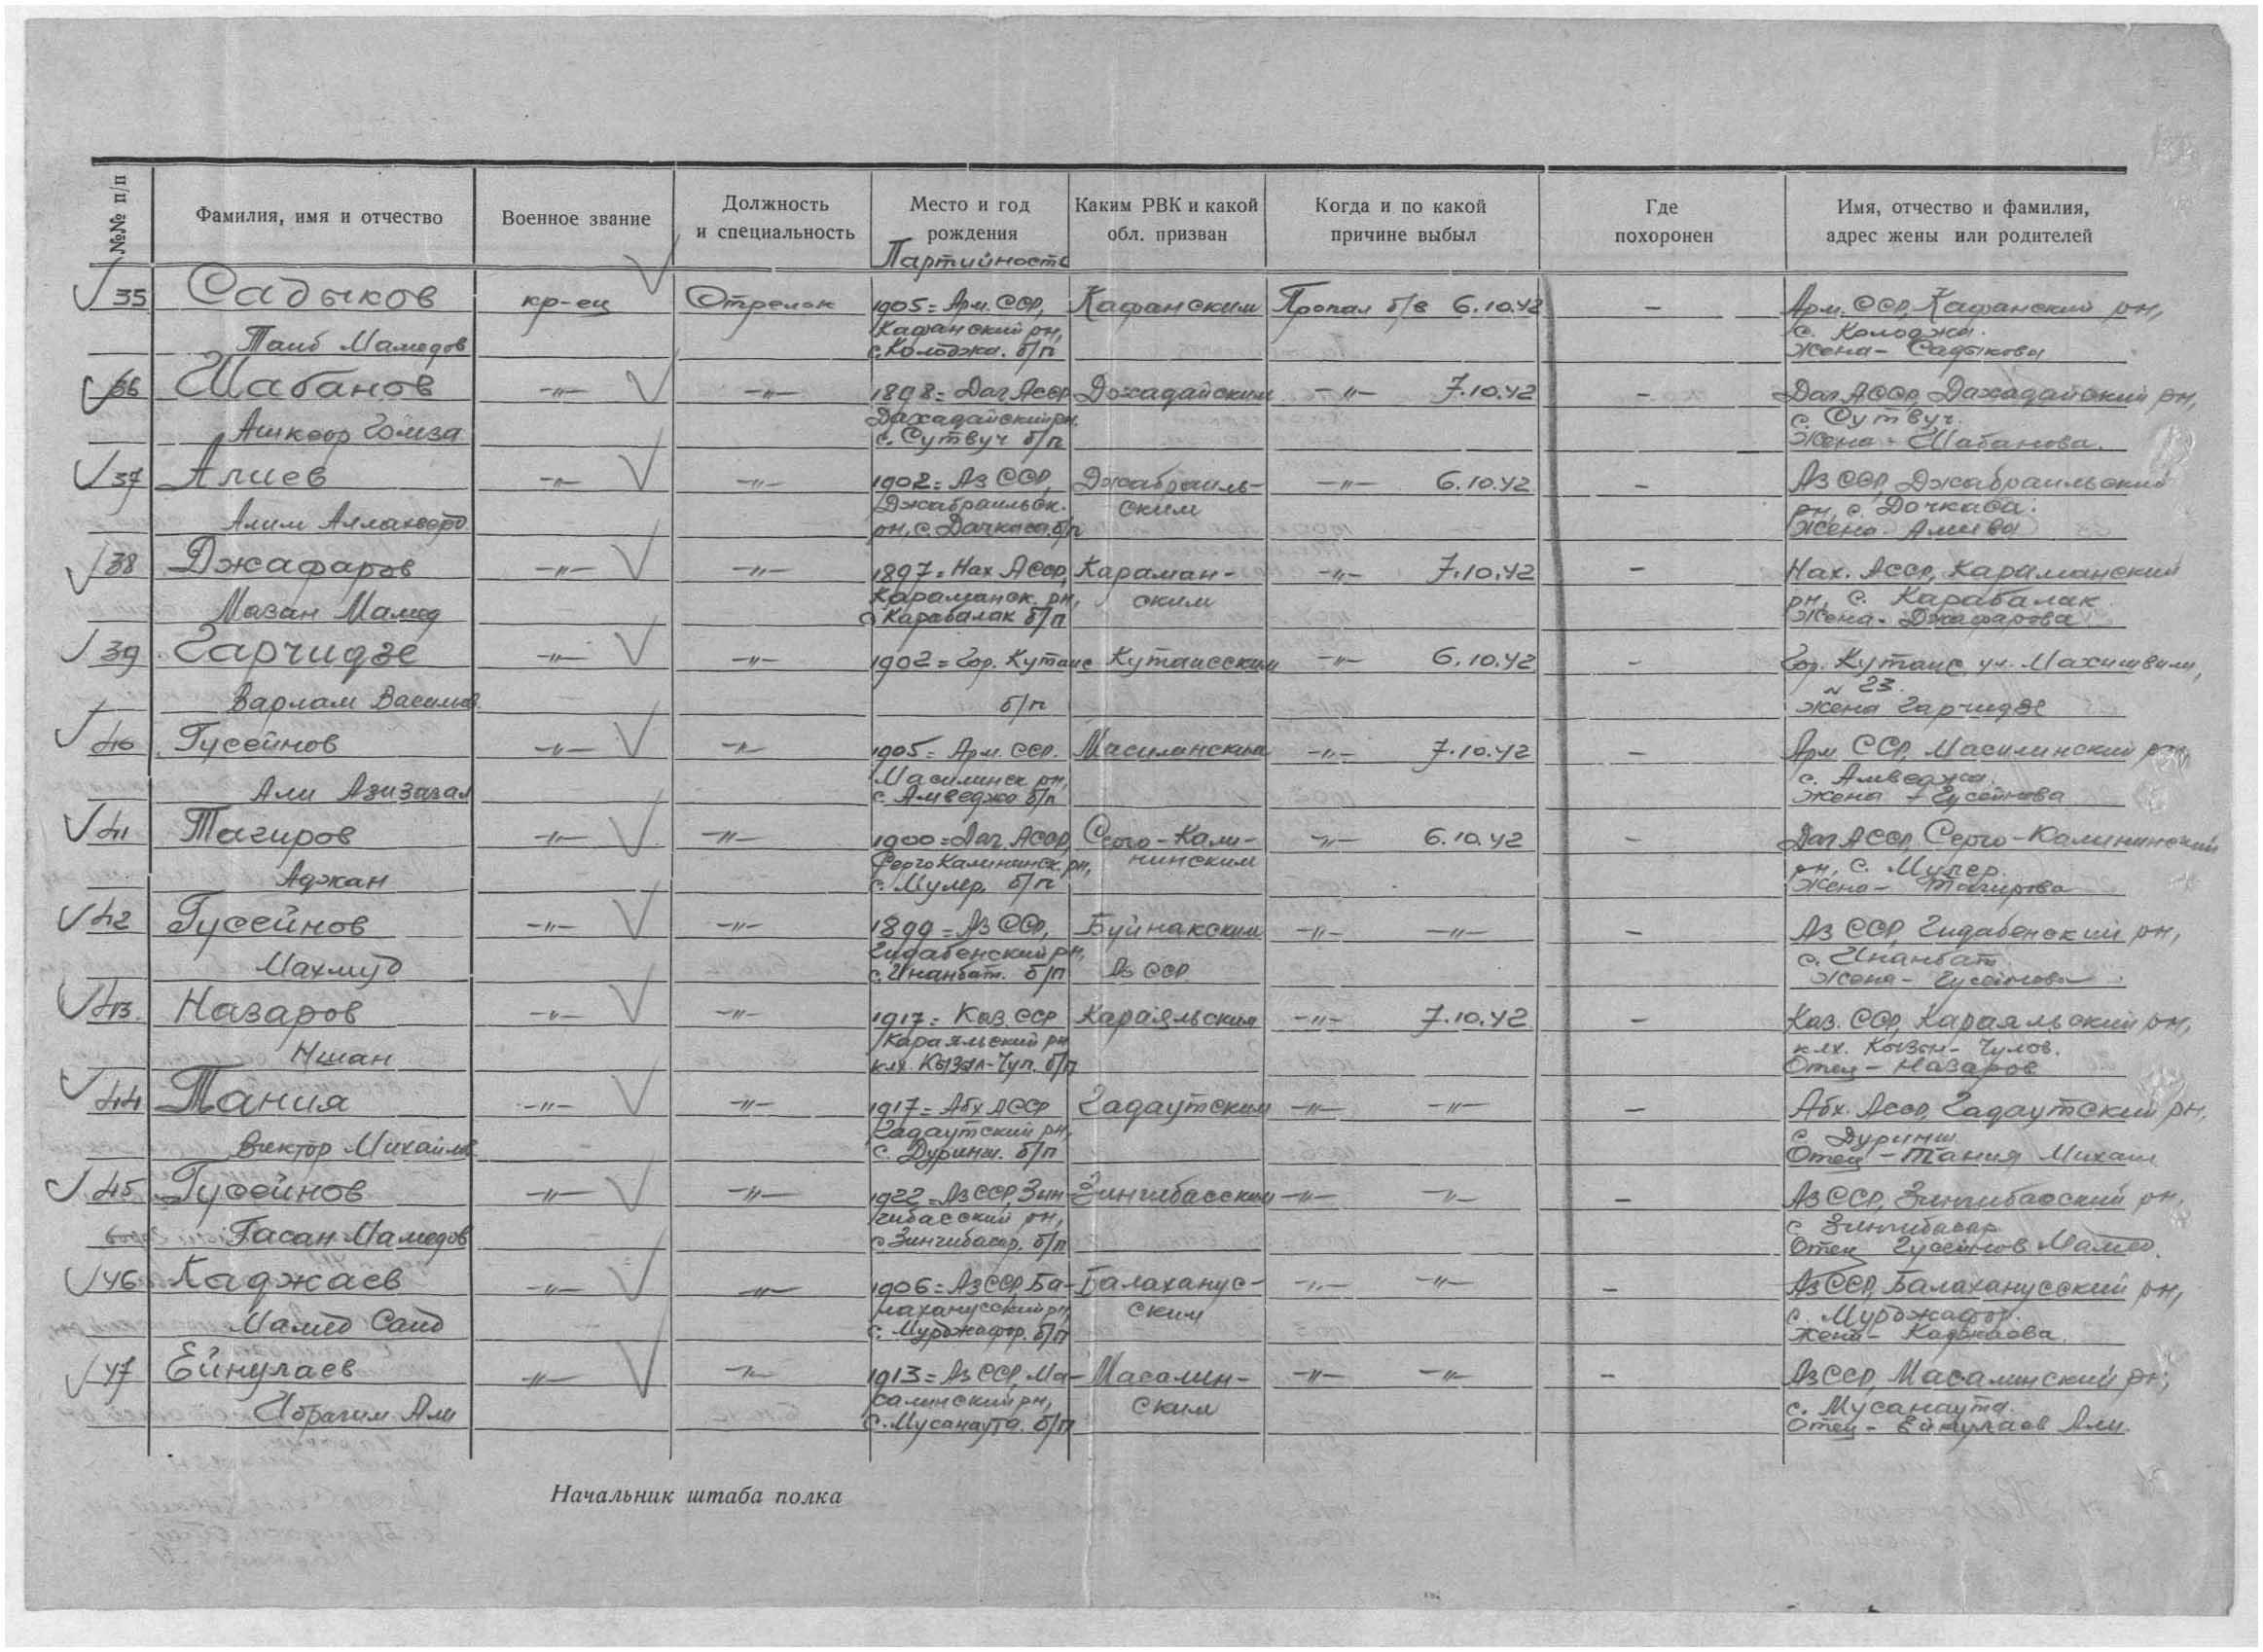 №№ п/п
Фамилия, имя и отчество
Военное звание
Должность
и специальность
Место и год
рождения
Партийность
Каким РВК и какой
обл. призван
Когда и по какой
причине выбыл
Где
похоронен
Имя, отчество и фамилия,
адрес жены или родителей
35 Садыков кр-ец Стрелок 1905= Арм. ССР, Кафанским Пропал б/в 6.10.42 – Арм. ССР, Кафанский рн,
Кафанский рн, с. Колоджи.
Таиб Мамедов с. Колоджа. б/п Жена – Садыкова
36 Шабанов –"– –"– 1898= Даг АССР Дахадайским –"– 7.10.42 – Даг АССР, Дахадайский рн,
Дахадайский рн. с. Сутвуч.
Гамза с. Сутвуч б/п Жена – Шабанова.
37 Алиев –"– –"– 1902= Аз ССР, Джабраиль- –"– 6.10.42 – Аз ССР, Джабраильский
Джабраильск. ским рн, с. Дочкаса.
Алим Аллахверд рн, с. Дачкаса. б/п Жена – Алиева
38 Джафаров –"– –"– 1897= Нах АССР, Караман- –"– 7.10.42 – Нах. АССР, Караманский
Караманск. рн, ским рн, с. Карабалак
Мазан Мамед с. Карабалак б/п Жена – Джафарова
39 Гарчидзе –"– –"– 1902= Гор. Кутаис Кутаисским –"– 6.10.42 – Гор. Кутаис, ул.
№ 23.
Варлам Василов. б/п Жена Гарчидзе
40 Гусейнов –"– –"– 1905= Арм. ССР. Масилинским –"– 7.10.42 – Арм ССР, Масилинский рн,
Масилинск рн, с. Амведжа.
Али с. Амведжа б/п Жена – Гусейнова
41 Тагиров –"– –"– 1900= Даг. АССР, Серго-Кали- –"– 6.10.42 – Даг АССР, Серго-Калининский
Серго Калининск. рн, нинским рн, с.
Аджан с. б/п Жена – Тагирова
42 Гусейнов –"– –"– 1899= Аз ССР, Буйнакским –"– –"– – Аз ССР, Гидабенский рн,
Гидабенский рн, с. Инанбат
Махмуд с. Инанбат. б/п Аз ССР Жена – Гусейнова
43. Назаров –"– –"– 1917= Каз. ССР Караяльским –"– 7.10.42 – Каз. ССР, Караяльский рн,
Караяльский рн клх. Кызыл-
Ншан клх. Кызыл-Чул. б/п Отец – Назаров
44 Тания –"– –"– 1917= Абх АССР Гадаутским –"– –"– – Абх. АССР, Гадаутский рн,
Гадаутский рн, с. Дуриш
Виктор Михайлов. с. Дуриш. б/п Отец – Тания Михаил
45 Гусейнов –"– –"– 1922= Аз ССР, Зин- Зингибасским –"– –"– – Аз ССР, Зингибасский рн.
гибасский рн, с. Зингибасар
Гасан Мамедов с. Зингибасар. б/п Отец Гусейнов Мамед.
46 Каджаев –"– –"– 1906= Аз ССР, Ба- Балаханус- –"– –"– – Аз ССР, Балаханусский рн,
лаханусский рн, ским с. Мурджафор.
Мамед Саид с. Мурджафор. б/п Жена – Каджаева.
47 Ейнулаев –"– –"– 1913= Аз ССР, Ма- Масалин- –"– –"– – Аз ССР, Масалинский рн,
салинский рн, ским с. Мусанаута.
Ибрагим Али с. Мусанаута. б/п Отец – Ейнулаев Али.
Начальник штаба полка